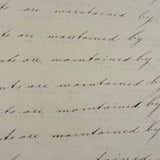 are maintained by
nts are maintained by
nts are maintained by
ents are maintained by
nts are maintained by
ts are maintained by